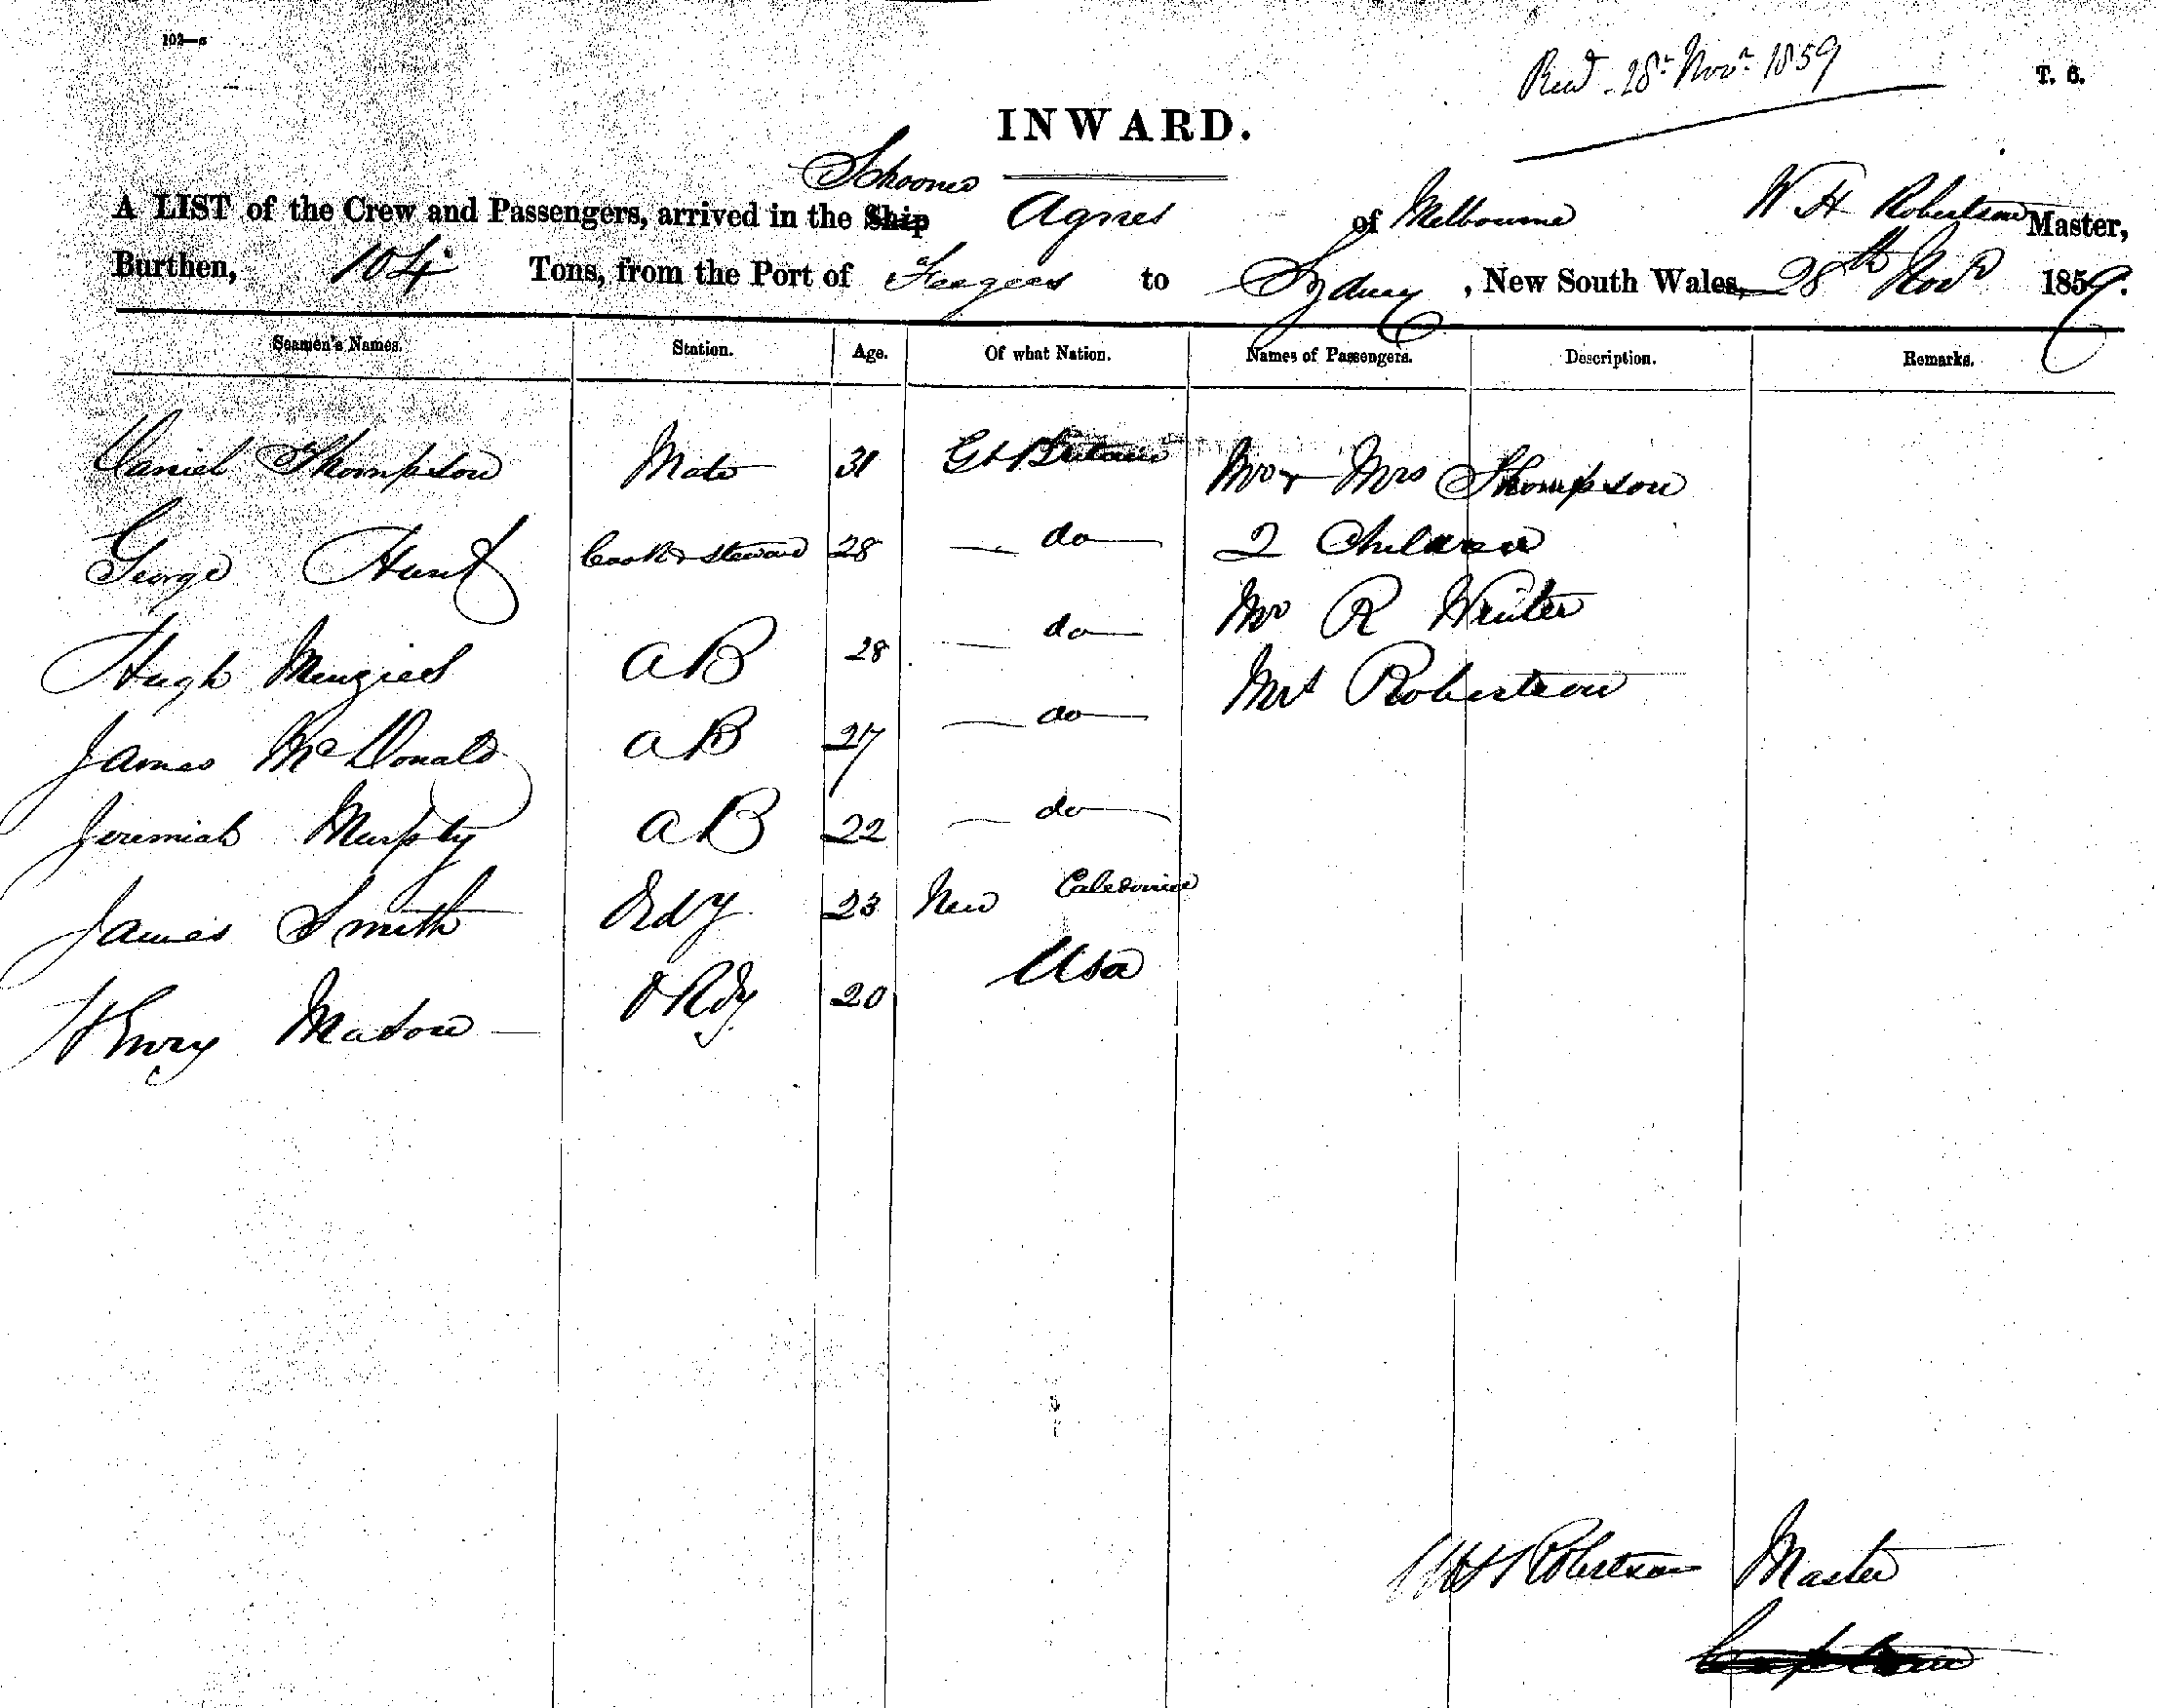 102—a
Recd. 28th Novr. 1859
T. 6.
INWARD.
Schooner
A LIST of the Crew and Passengers, arrived in the Ship Agnes of Melbourne W H Robertson Master,
Burthen, 104 Tons, from the Port of Feegees to Sydney, New South Wales, 28th Novr 1859.
Seamen's Names. Station. Age. Of what Nation. Names of Passengers. Description. Remarks.
Daniel Thompson Mate 31 Gt Britain Mr & Mrs Thompson
George Hunt Cook & Steward 28 do 2 Children
Hugh Menzies AB 28 do Mr R Winter
James McDonald AB 27 do Mrs Robertson
Jeremiah Murphy AB 22 do
James Smith Ordy 23 New Caledonia
Henry Mason ORdy 20 Usa
W H Robertson Master
Captain